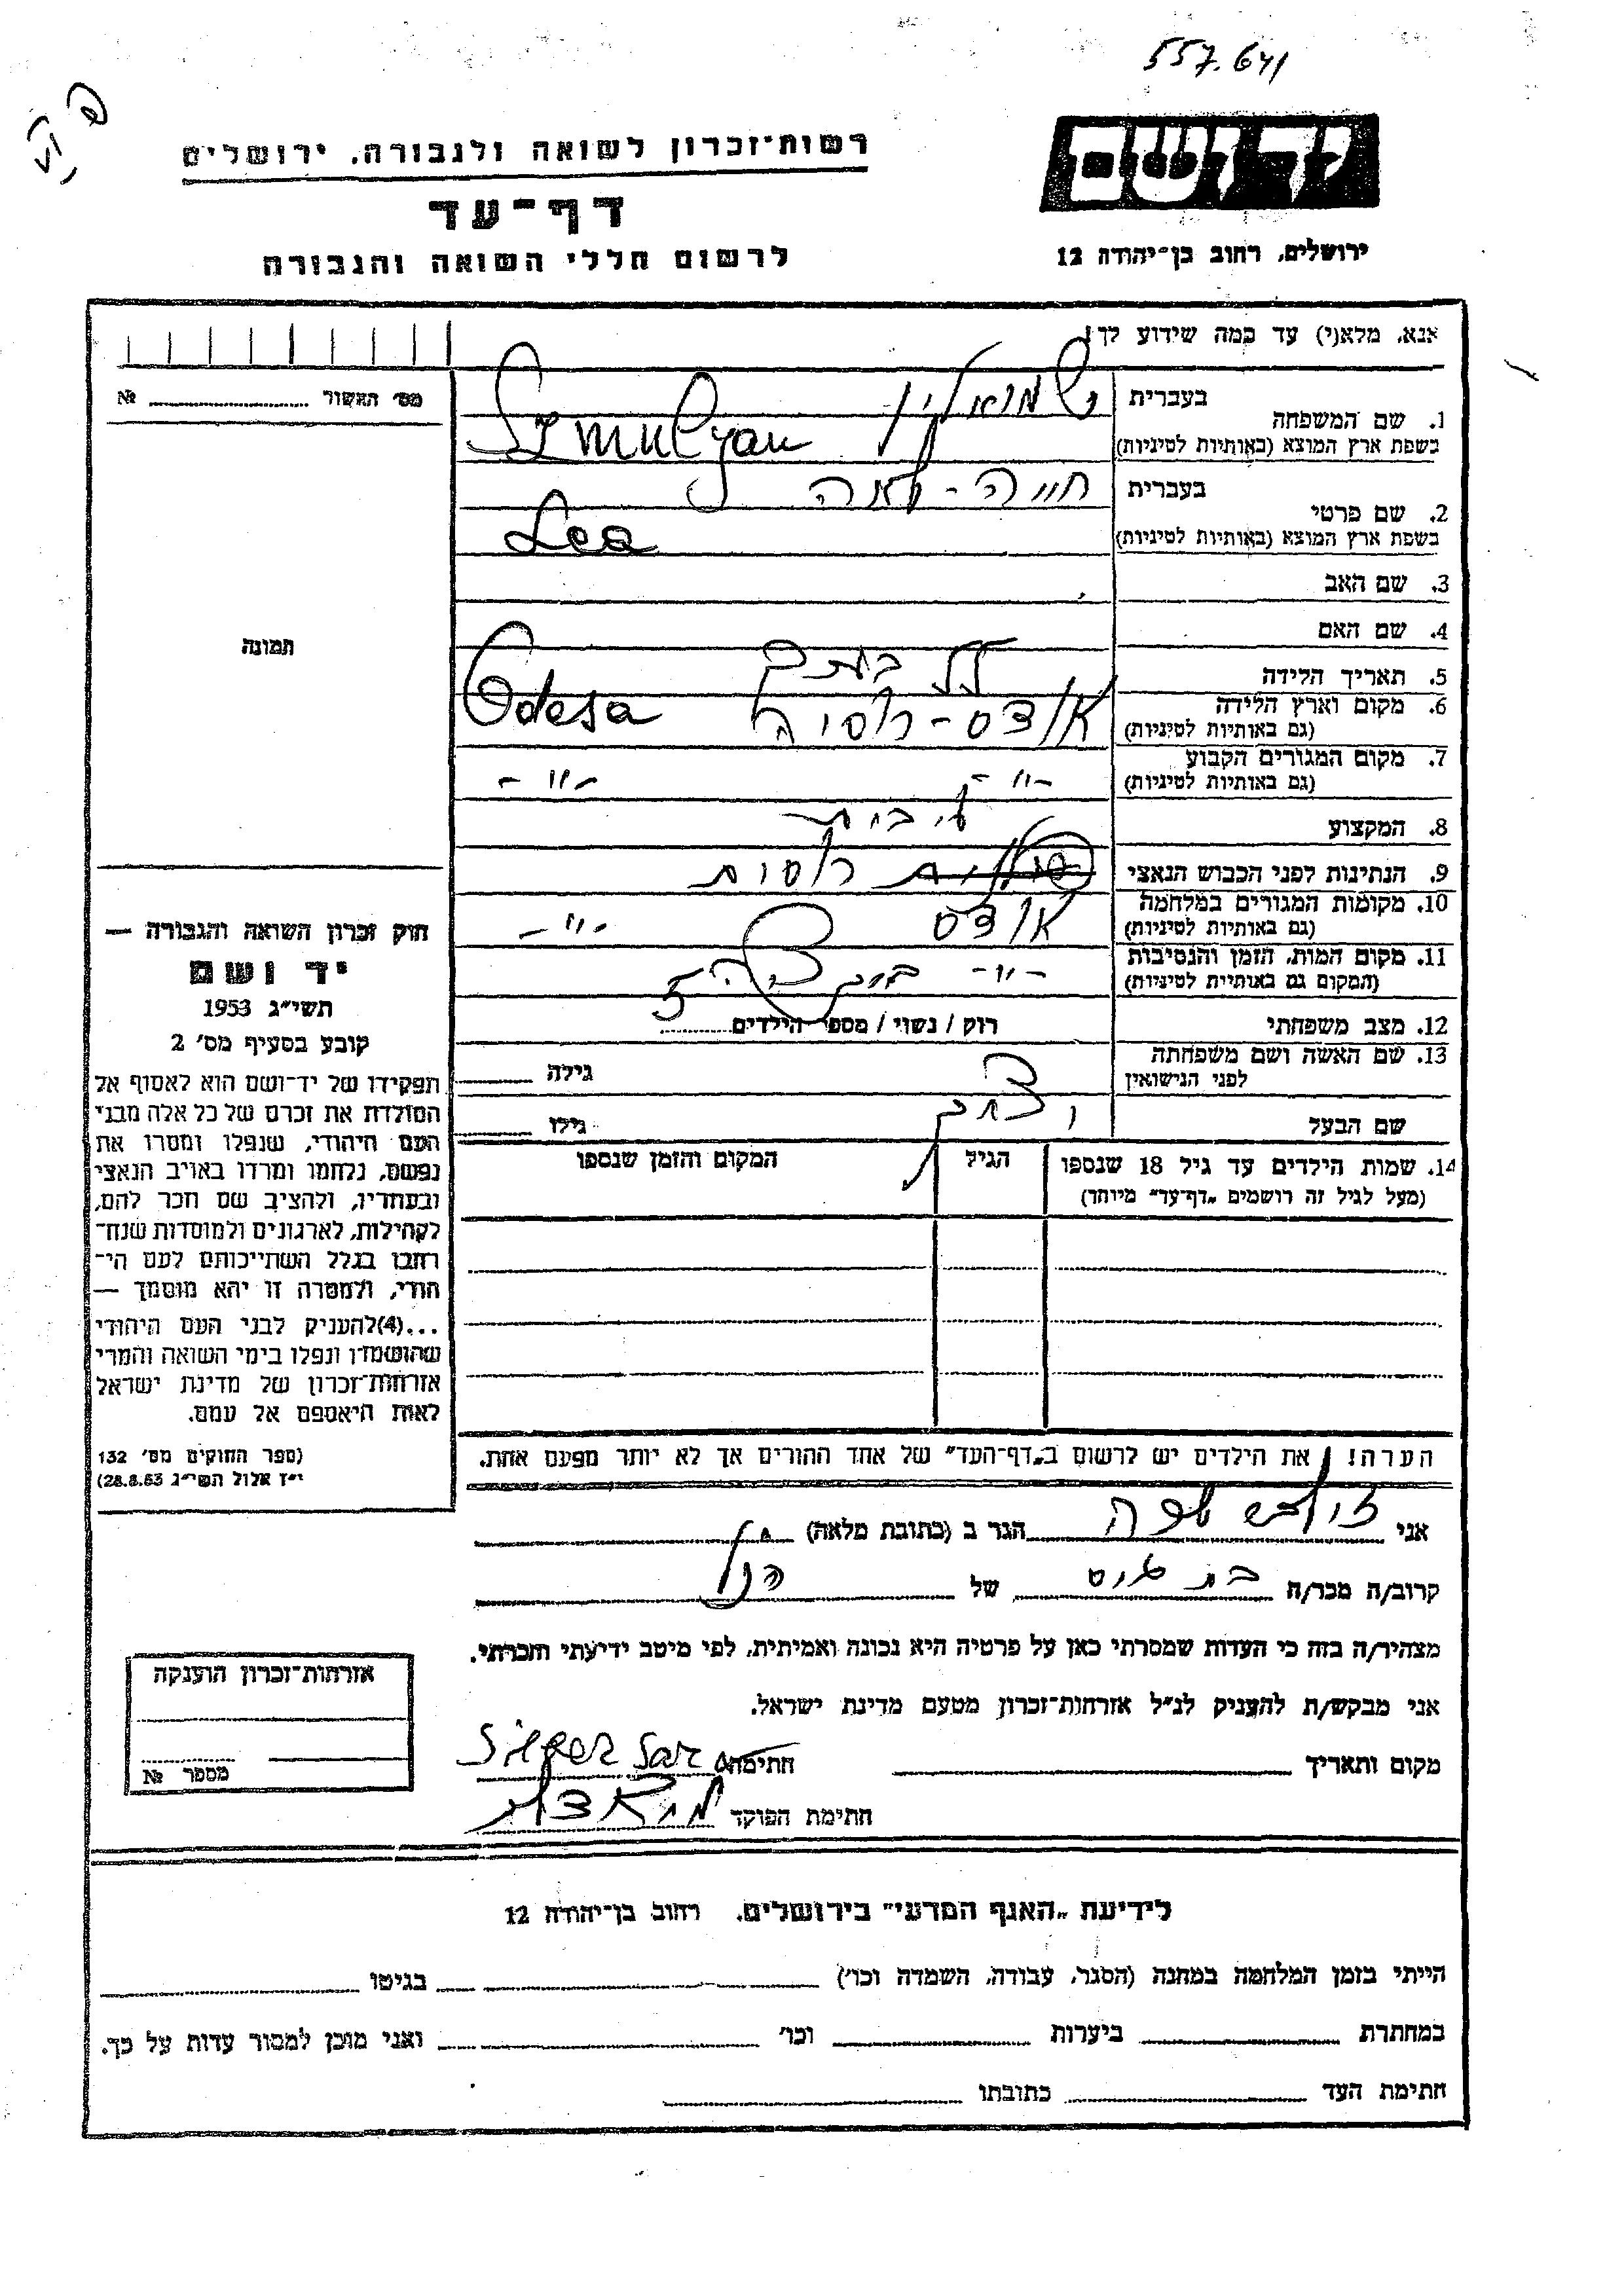 557.641
רשות־זכרון לשואה ולגבורה, ירושלים
דף־עד
לרשום חללי השואה והגבורה
יד ושם
ירושלים, רחוב בן־יהודה 12
אנא, מלא(י) עד כמה שידוע לך!
מס׳ האשור № ........
תמונה
1. שם המשפחה
בעברית
שמואליאן
בשפת ארץ המוצא (באותיות לטיניות)
Szmulyan
2. שם פרטי
בעברית
חייה - לאה
בשפת ארץ המוצא (באותיות לטיניות)
Lea
3. שם האב
4. שם האם
5. תאריך הלידה
6. מקום וארץ הלידה
(גם באותיות לטיניות)
אודס - רוסיה Odesa
7. מקום המגורים הקבוע
(גם באותיות לטיניות)
-"- -"-
8. המקצוע
9. הנתינות לפני הכבוש הנאצי
רוסית
10. מקומות המגורים במלחמה
(גם באותיות לטיניות)
אודס -"-
11. מקום המות, הזמן והנסיבות
(המקום גם באותיית לטיניות)
-"-
12. מצב משפחתי
רוק / נשוי / מספר הילדים ........
13. שם האשה ושם משפחתה
לפני הנישואין
גילה
שם הבעל
גילו
14. שמות הילדים עד גיל 18 שנספו
(מעל לגיל זה רושמים „דף־עד״ מיוחד)
הגיל
המקום והזמן שנספו
חוק זכרון השואה והגבורה —
יד ושם
תשי״ג 1953
קובע בסעיף מס׳ 2
תפקידו של יד־ושם הוא לאסוף אל
המולדת את זכרם של כל אלה מבני
העם היהודי, שנפלו ומסרו את
נפשם, נלחמו ומרדו באויב הנאצי
ובעוזריו, ולהציב שם וזכר להם,
לקהילות, לארגונים ולמוסדות שנח־
רבו בגלל השתייכותם לעם הי־
הודי, ולמטרה זו יהא מוסמך —
...(4)להעניק לבני העם היהודי
שהושמדו ונפלו בימי השואה והמרי
אזרחות־זכרון של מדינת ישראל
לאות היאספם אל עמם.
(ספר החוקים מס׳ 132
י״ז אלול תשי״ג 28.8.53)
הערה! את הילדים יש לרשום ב„דף־העד״ של אחד ההורים אך לא יותר מפעם אחת.
אני ........ הגר ב (כתובת מלאה)
קרוב/ה מכר/ה ........ של הנ״ל
מצהיר/ה בזה כי העדות שמסרתי כאן על פרטיה היא נכונה ואמיתית, לפי מיטב ידיעתי והכרתי.
אני מבקש/ת להעניק לנ״ל אזרחות־זכרון מטעם מדינת ישראל.
מקום ותאריך ________ חתימה Silber Sara
חתימת הפוקד
אזרחות־זכרון הוענקה
מספר №
לידיעת „האגף המדעי״ בירושלים, רחוב בן־יהודה 12
הייתי בזמן המלחמה במחנה (הסגר, עבודה, השמדה וכו׳) ________ בגיטו ________
במחתרת ________ ביערות ________ וכו׳ ________ ואני מוכן למסור עדות על כך.
חתימת העד ________ כתובתו ________